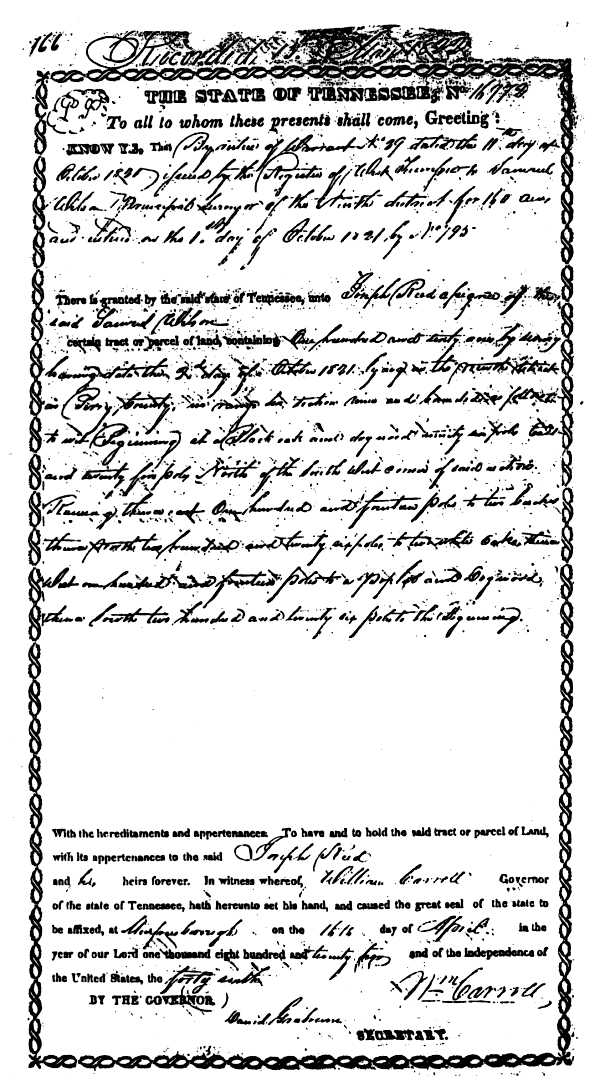 166
Recorded, 15 May 1822
THE STATE OF TENNESSEE; No. 16773.
To all to whom these presents shall come, Greeting:
KNOW YE, That By virtue of Warrant No 29 dated the 11th day of
October 1820 issued by the Register of West Tennessee to Samuel
Wilson Principal Surveyor of the Ninth district for 160 acres
and entered on the 1st day of October 1821 by No 195
There is granted by the said state of Tennessee, unto Joseph Reed assignee of the
said Samuel Wilson
certain tract or parcel of land, containing One hundred and sixty acres by survey
bearing date the 2d day of October 1821 lying in the Ninth district
in Perry County, in range six section nine and bounded as follows
to wit Beginning at a Black oak and dogwood ninety six poles East
and twenty five poles North of the South West corner of said section
Running thence East One hundred and fourteen poles to two Oaks
thence North two hundred and twenty six poles to two white oaks thence
West one hundred and fourteen poles to a Poplar and Dogwood,
thence South two hundred and twenty six poles to the Beginning.
With the hereditaments and appertenances. To have and to hold the said tract or parcel of Land,
with its appertenances to the said Joseph Reed
and his heirs forever. In witness whereof, William Carroll Governor
of the state of Tennessee, hath hereunto set his hand, and caused the great seal of the state to
be affixed, at Murfreesborough on the 16th day of April in the
year of our Lord one thousand eight hundred and twenty two and of the independence of
the United States, the forty sixth
BY THE GOVERNOR. Wm Carroll,
Daniel Graham
SECRETARY.